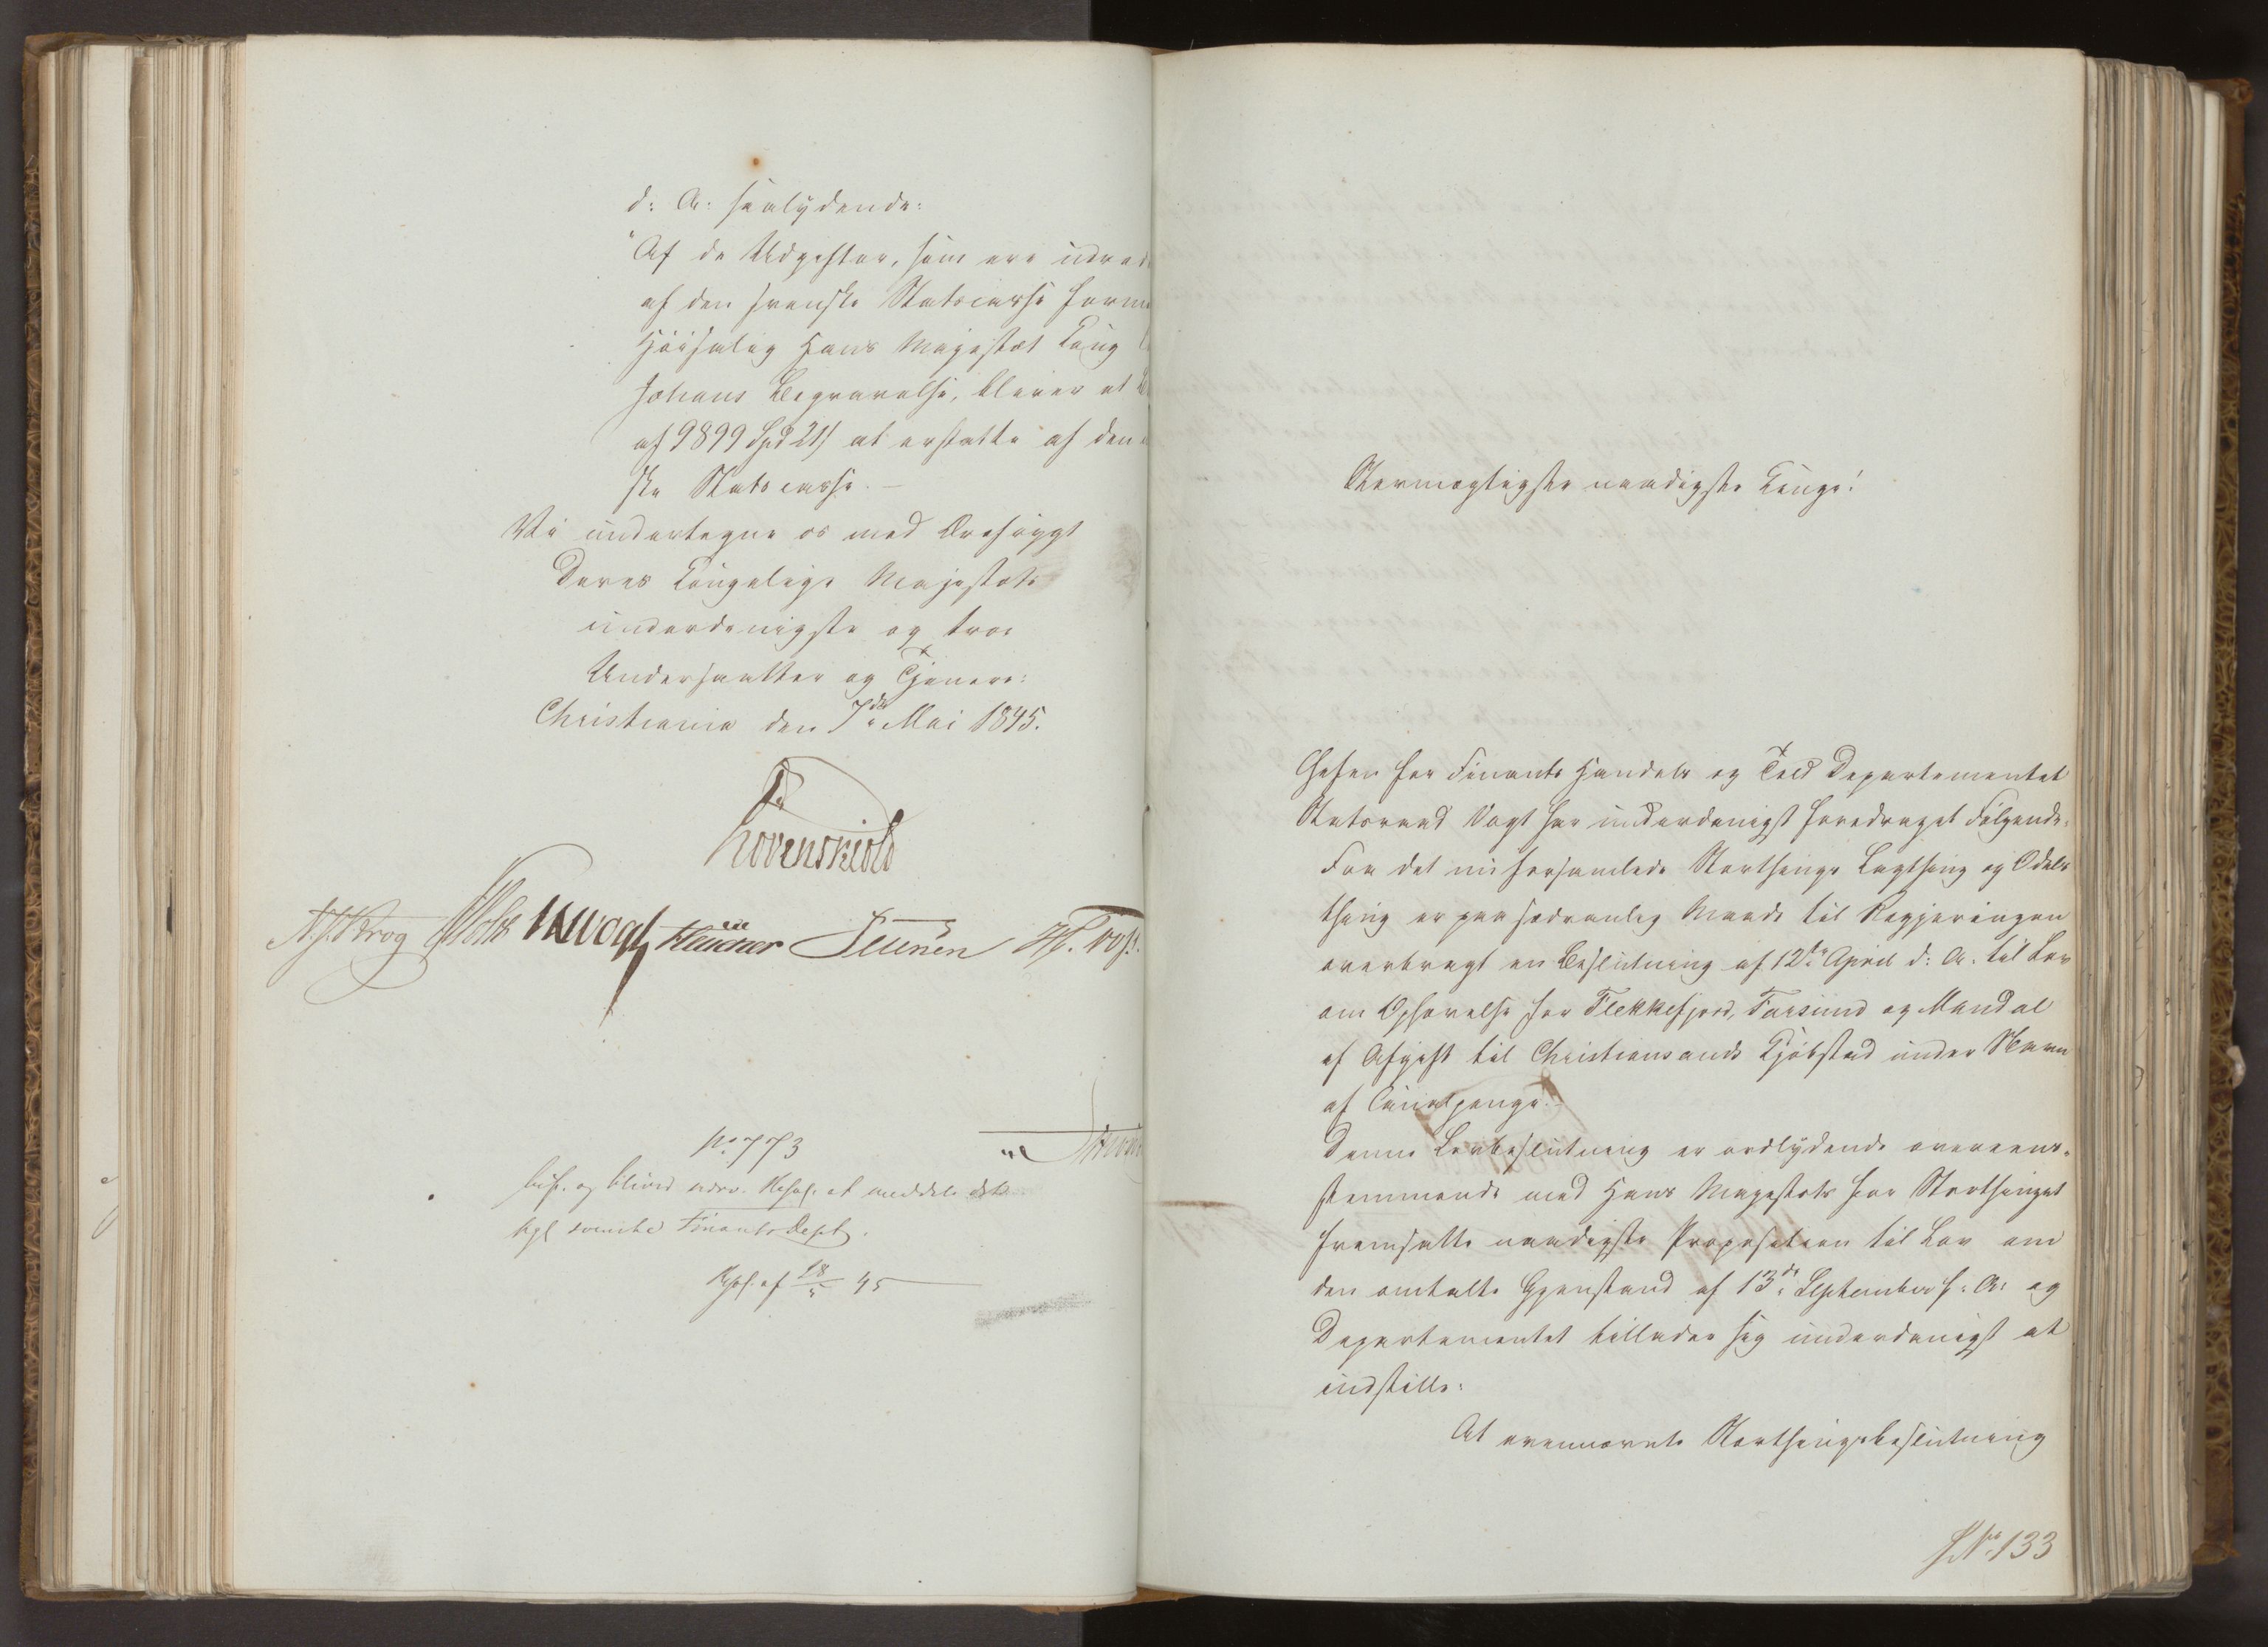 d: A: saalydende:
"Af de Udgifter, som ere udrede
af den svenske Statscasse formed
Höisalig Hans Majestæt Kong
Johans Begravelse, bliver et
af 9899 Spd 21 s at erstatte af den
ske Statscasse. —
Vi undertegne os med Ærefrygt
Deres Kongelige Majestæts
underdanigste og troe
Undersaatter og Tjenere:
Christiania den 7de Mai 1845.
Løvenskiold
N. J. Krog Holst JHVogt Petersen H. Foss.
No 773
bif. og bliver nærv. Resol. at meddele det
kgl svenske Finants Dept.
Resol. af 18/5 45
Stormægtigste naadigste Konge!
Chefen for Finants Handels og Told Departementet
Statsraad Vogt har underdanigst foredraget Følgende:
Fra det nu forsamlede Storthings Lagthing og Odels
thing er paa sædvanlig Maade til Regjeringen
overbragt en Beslutning af 12te April d: A. til Lov
om Ophævelse for Flekkefjord, Farsund og Mandal
af Afgift til Christiansands Kjöbstad under Navn
af Canalpenge. -
Denne Lovbeslutning er ordlydende overeens-
stemmende med Hans Majestæts for Storthinget
fremsatte naadigste Proposition til Lov om
den omtalte Gjenstand af 13de September f: A: og
Departementet tillader sig underdanigst at
indstille:
At ovennævnte Storthingsbeslutning
No 133